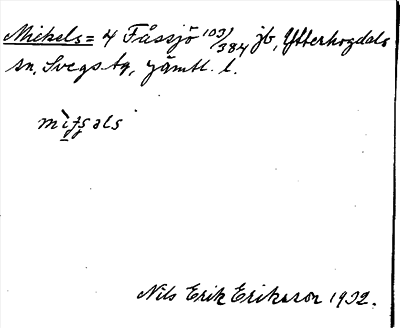 Mickels= 4 Fåssjö 103/384 jb, Ytterhogdals
sn, Svegs tg, Jämtl. l.
Nils Erik Eriksson 1932.